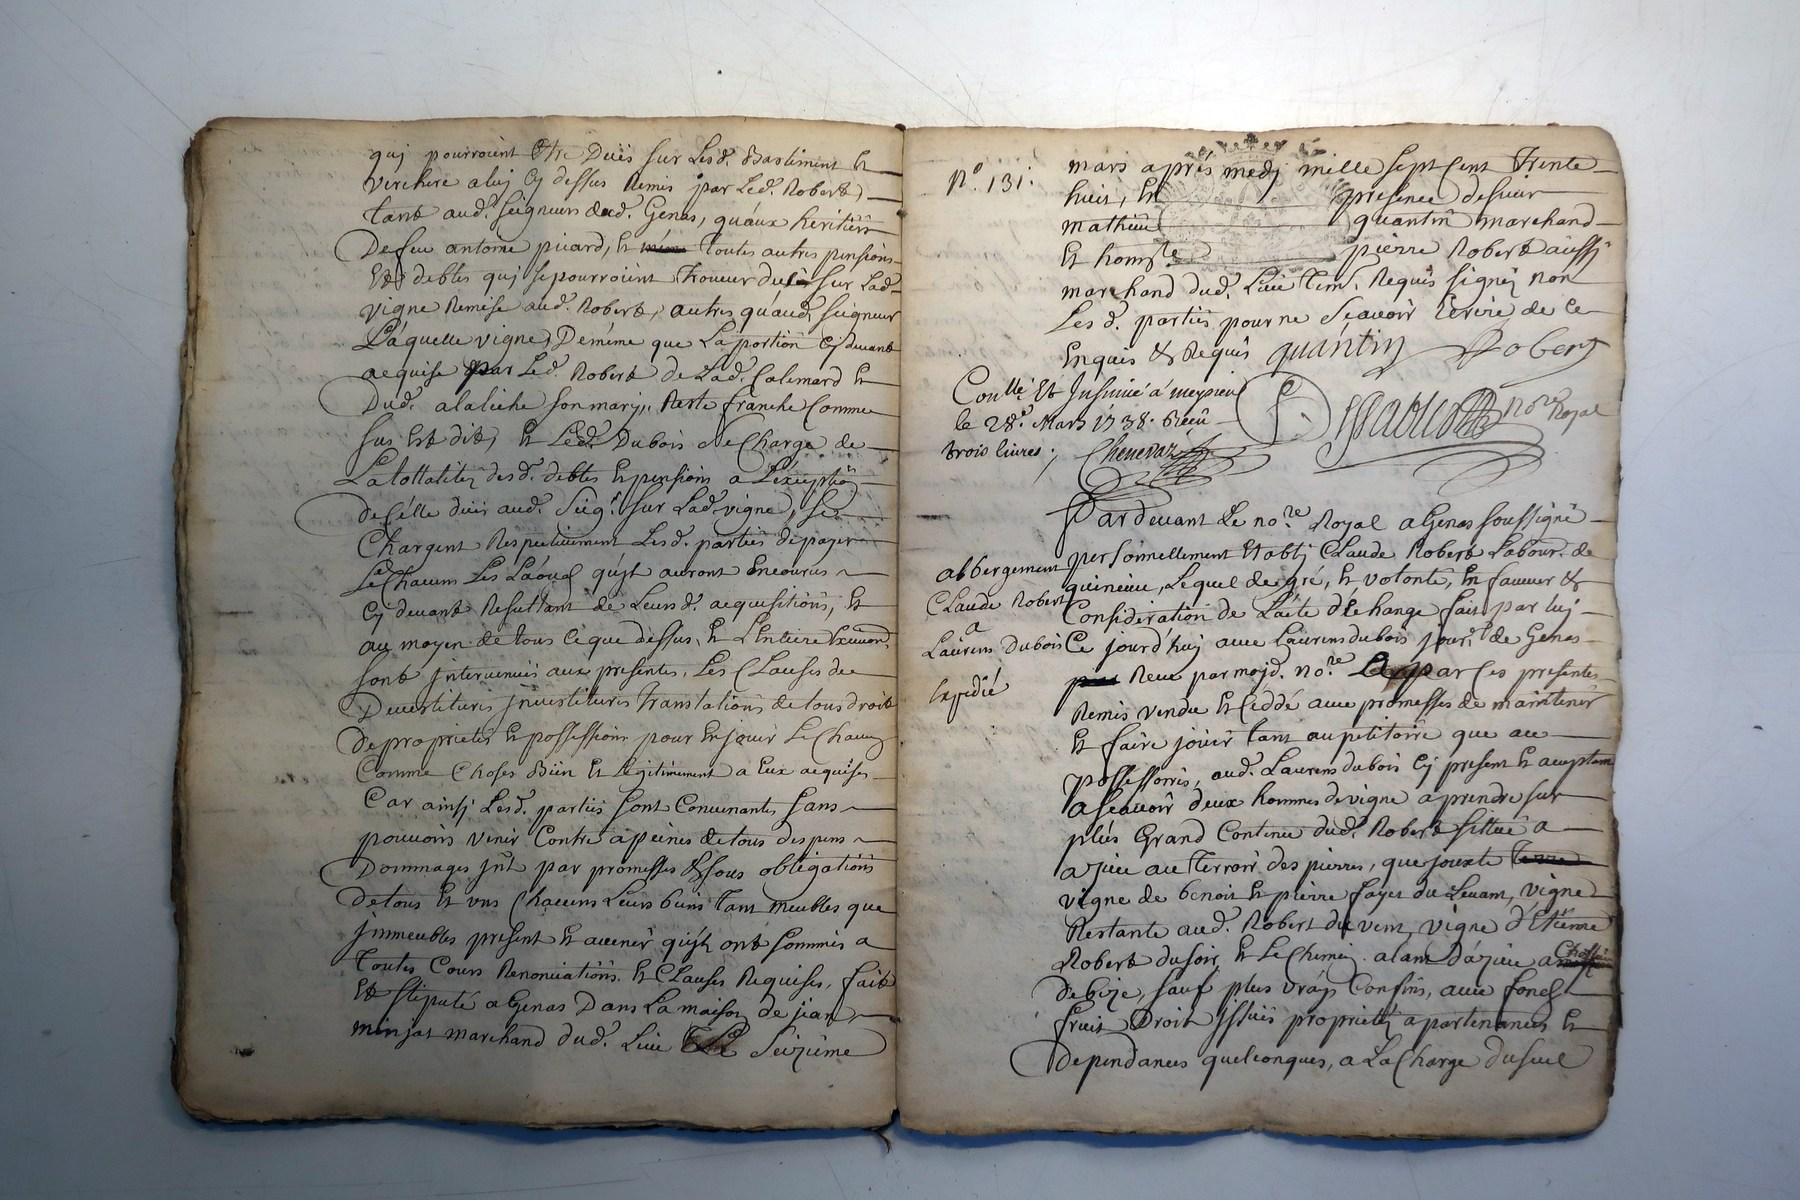 quj pourroient Etre Duës sur Lesd. Bastiment Et
Verchere a luj Cy dessus Remis par Led. Robert,
tant aud. seigneur dud. Genas, qu'aux heritiers
De feu antoine picard, Et toutes autres pensions
Et debtes quj se pourroient trouver sur Lad.
vigne Remise aud. Robert, autres qu'aud. seigneur
Laquelle vigne, De même que La portion Cy devant
acquise par Led. Robert de Lad. Calemard Et
Dud. alaliche son marj, Reste franche Comme
sus Est dit, Et Led. Dubois se Charge de
La tottalité desd. debtes Et pensions a L'exception
De Celle düe aud. Seigr. sur Lad. vigne, se
Chargent Respectivement Lesd. parties de payer
Chacun Les Laouds qu'jls auront Encourus
Cy devant Resultant de Leursd. acquisitions, Et
au moyen de tous Ce que dessus, Et L'Entiere
sont jntervenues aux presentes, Les Clauses de
Devestitures jnvestitures translations de tous droits
de proprietés Et possessions pour En jouir Le Chacun
Comme Choses Bien Et Legitimement a Eux acquises
Car ainsj Lesd. parties sont Convenantes sans
pouvoir venir Contre a peines de tous despens
Dommages jnt. par promesses & sous obligations
de tous Et uns Chacuns Leurs biens tant meubles que
jmmeubles present Et avenir qu'jls ont sommis a
Toutes Cours Renonciations Et Clauses Requises, fait
Et stipulé a Genas Dans La maison de jean
minjat marchand dud. Lieu Le Seizieme
N.º 131.
mars aprés medj mille sept Cent Trente
huit, En presence de sieur
mathieu quantin marchand
Et homste pierre Robert aussj
marchand dud. Lieu tem. Requis signés non
Lesd. parties pour ne sçavoir Ecrire de Ce
Enquis & Requis quantin Robert
Conllé Et Jnsinué à meysieu
le 28e. Mars 1738. Receu
trois livres; Chenevaz
nore Royal
Pardevant Le nore. Royal a Genas soussigné
personnellement Etablj Claude Robert Labour. de
Lequel de gré, Et volonté, En faveur &
Consideration de L'acte d'échange fait par luj
Ce jourd'huj avec Laurens dubois jour. de Genas
Receu par mojd. nore. a par Ces presentes
Remis vendu Et Ceddé avec promesses de maintenir
Et faire jouir tant au petitoire que au
possessoire, aud. Laurens dubois Cy present Et acceptant
a sçavoir deux hommes de vigne a prendre sur
plus Grand Contenu dud. Robert sittué a
azieu au terroir des pierres, que jouxte
vigne de benoit Et pierre fayet du Levant, vigne
Restante aud. Robert du vent, vigne d'Etienne
Robert du soir, Et Le Chemin alant d'azieu a
de bize, sauf plus vrays Confins, avec fonds
fruit Droit jssües proprietés apartenances Et
dependances quelconques, a La Charge du seul
abbergement
Claude Robert
a
Laurens Dubois
Expedié